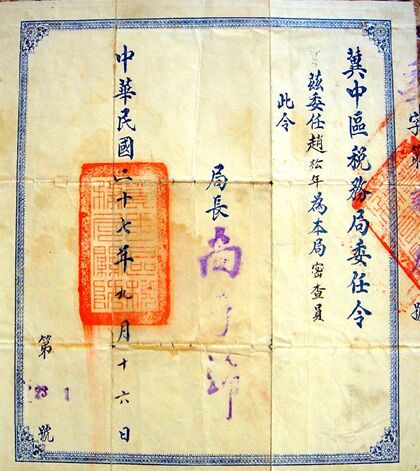 字第號
冀中區稅務局委任令
茲委任趙松年為本局密查員
此令
局長
中華民國三十七年九月十六日
第 23 1 號